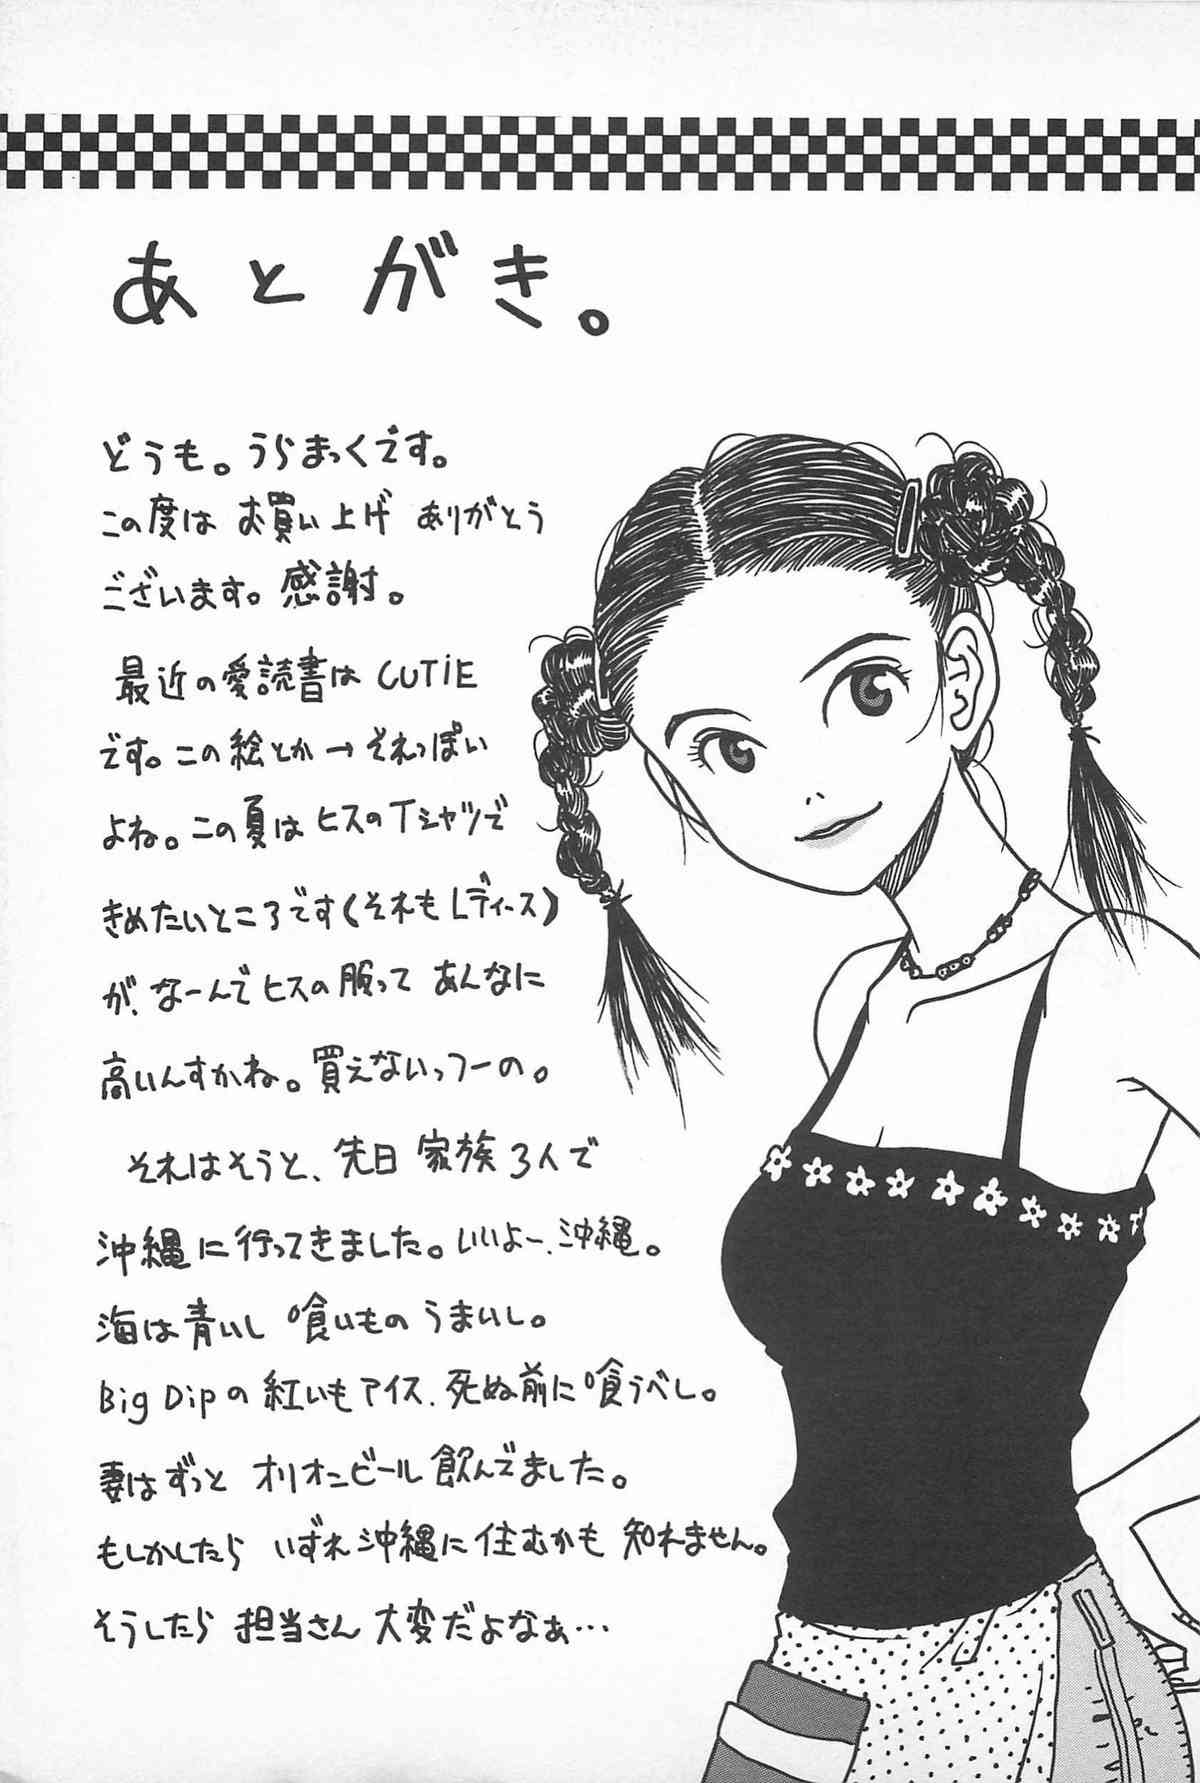 あとがき。
どうも。うらまっくです。
この度は お買い上げ ありがとう
ございます。感謝。
最近の愛読書は CUTiE
です。この絵とか→それっぽい
よね。この夏は ヒスのTシャツで
きめたいところです(それもLディース)
が、なーんでヒスの服って あんなに
高いんすかね。買えないっつーの。
それはそうと、先日 家族3人で
沖縄に行ってきました。いいよー、沖縄。
海は青いし 喰いもの うまいし。
Big Dipの 紅いもアイス、死ぬ前に喰うべし。
妻はずっと オリオンビール飲んでました。
もしかしたら いずれ沖縄に 住むかも 知れません。
そうしたら 担当さん 大変だよなぁ…